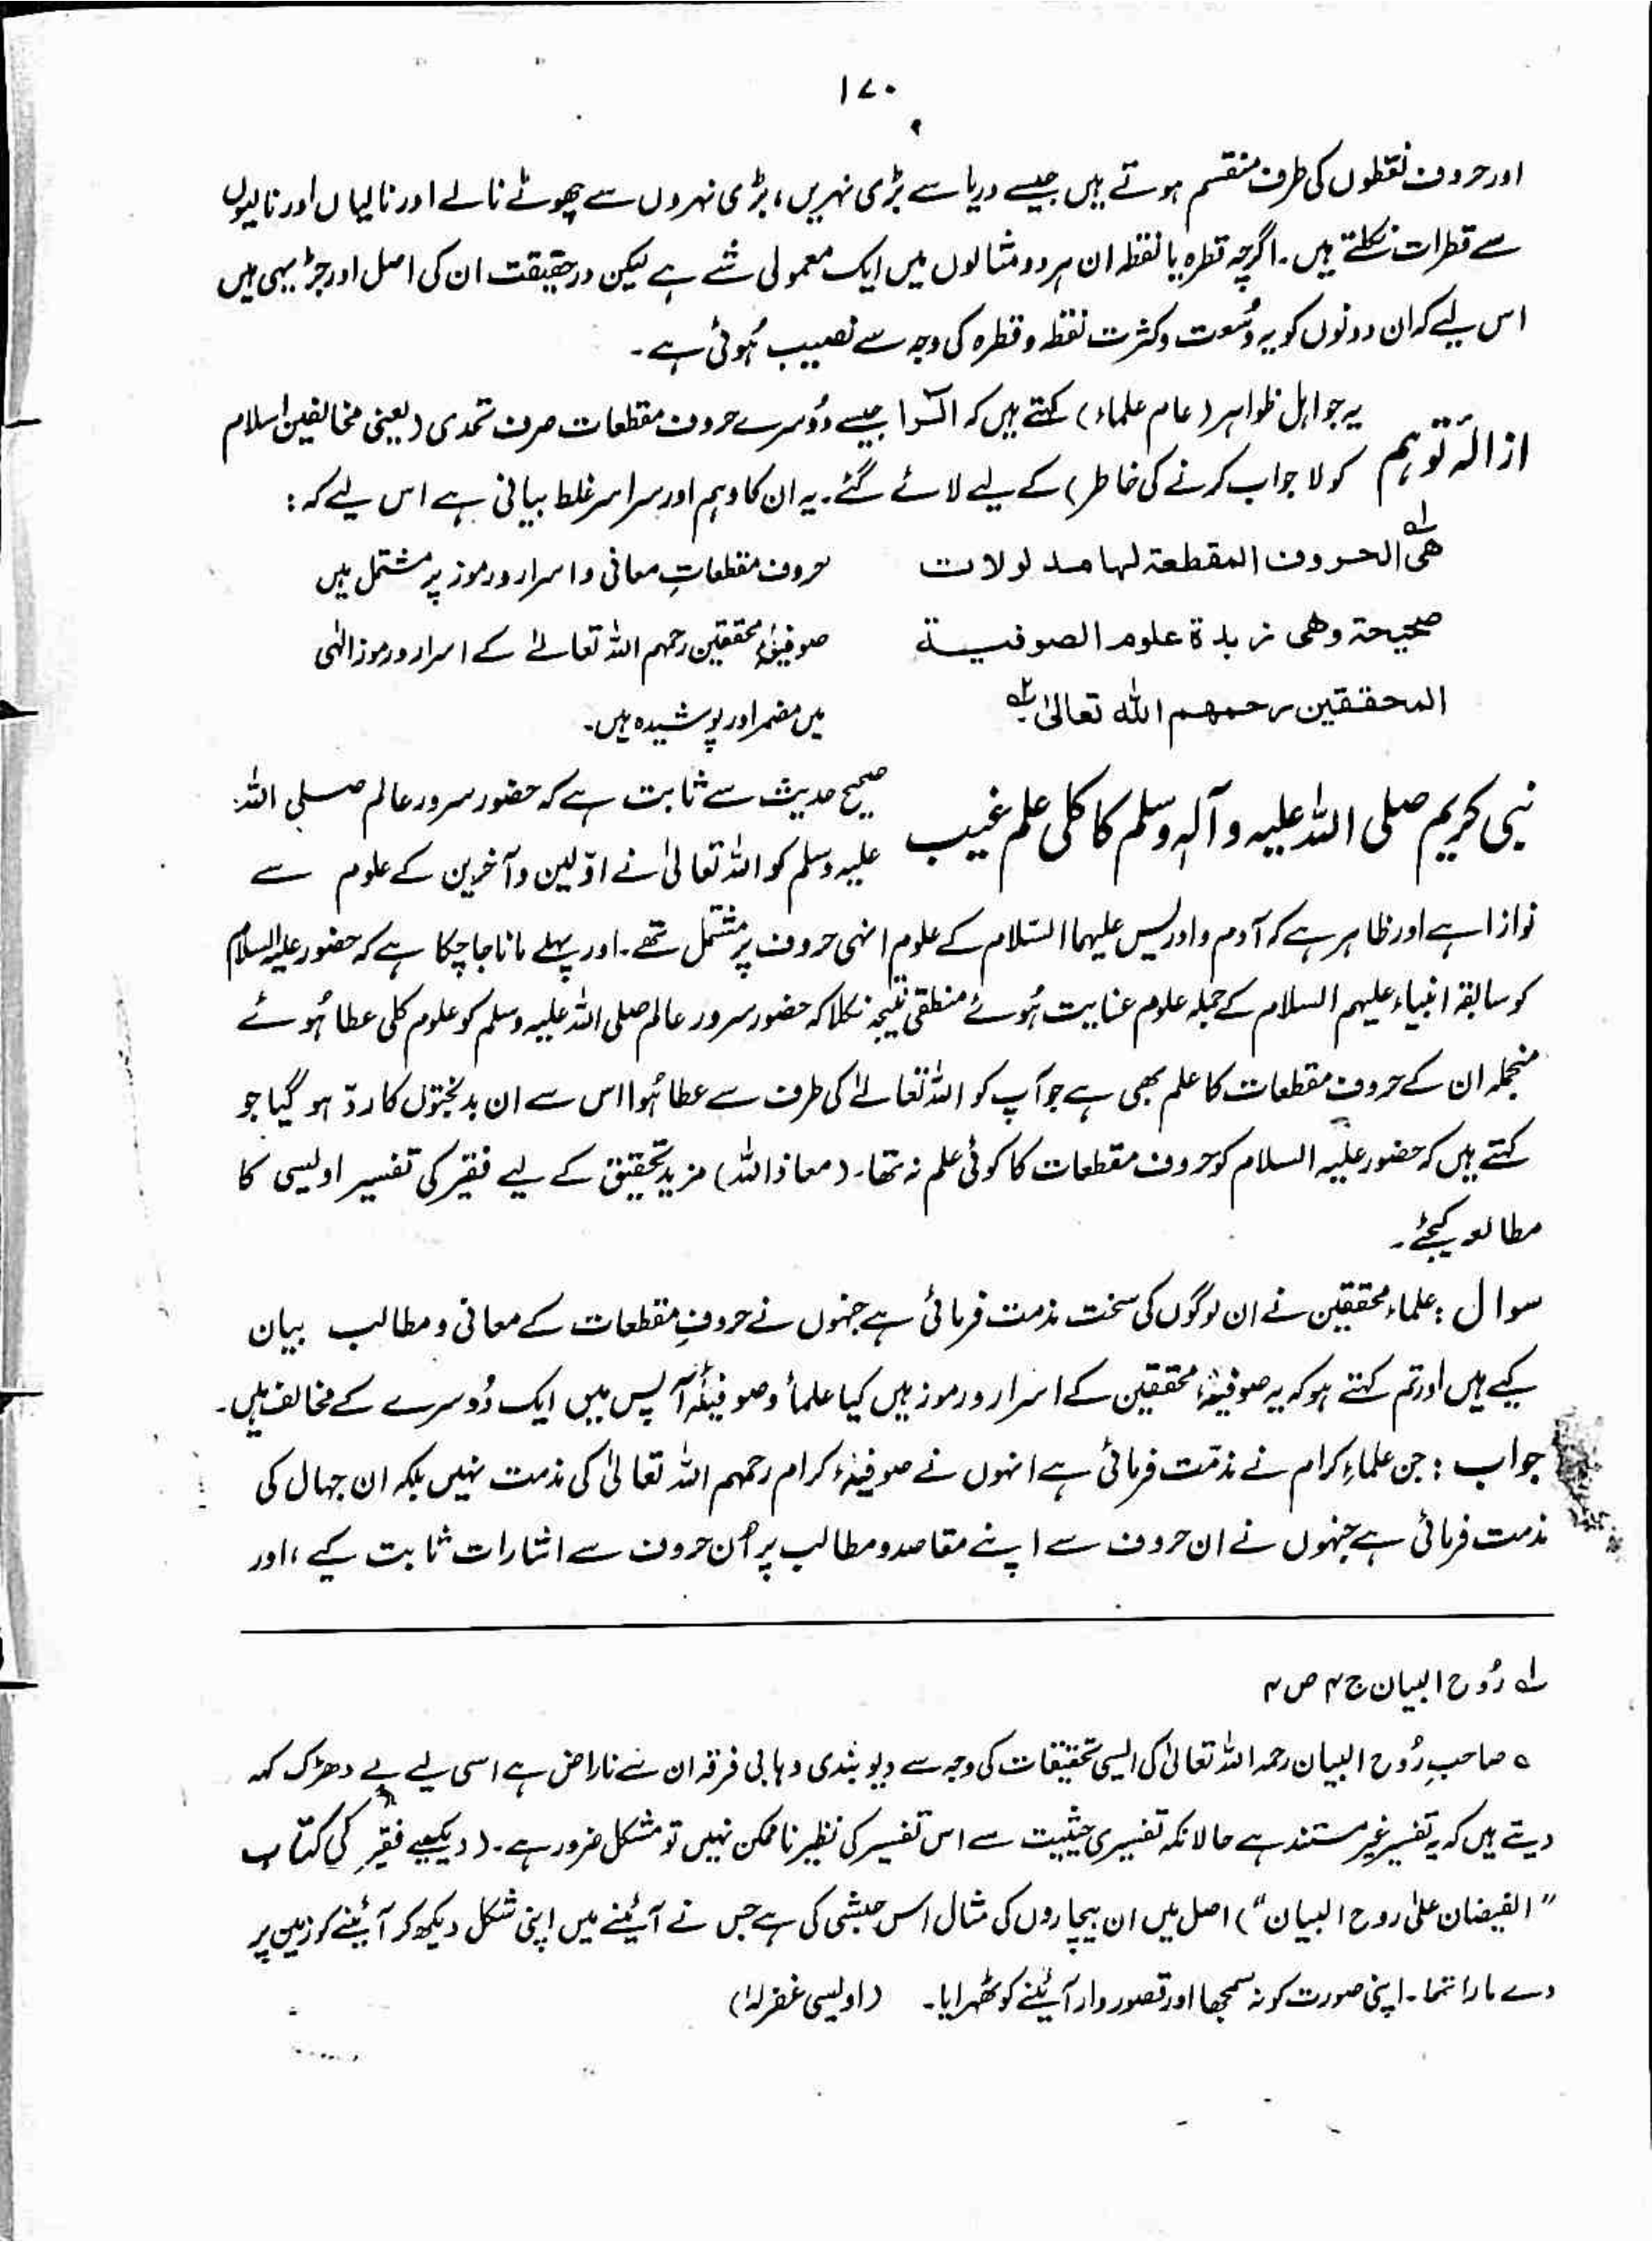 ۱۷۰
اور حروف نقطوں کی طرف منقسم ہوتے ہیں جیسے دریا سے بڑی نہریں، بڑی نہروں سے چھوٹے نالے اور نالیاں اور نالیوں
سے قطرات نکلتے ہیں۔ اگرچہ قطرہ یا نقطہ ان ہر دو مثالوں میں ایک معمولی شے ہے لیکن درحقیقت ان کی اصل اور جڑ یہی ہیں
اس لیے کہ ان دونوں کو یہ وُسعت و کثرت نقطہ و قطرہ کی وجہ سے نصیب ہُوئی ہے۔
ازالۂ توہم یہ جو اہل ظواہر (عام علماء) کہتے ہیں کہ الٓرٰا جیسے دُوسرے حروف مقطعات صرف تحدی (یعنی مخالفین اسلام
کو لاجواب کرنے کی خاطر) کے لیے لائے گئے۔ یہ ان کا وہم اور سراسر غلط بیانی ہے اس لیے کہ:
ھی الحروف المقطعۃ لھا مدلولات
صحیحۃ وھی زبدۃ علوم الصوفیۃ
المحققین رحمھم اللہ تعالیٰ لہ
حروف مقطعاتِ معانی و اسرار و رموز پر مشتمل ہیں
صوفیۂ محققین رحمہم اللہ تعالےٰ کے اسرار و رموز الٰہی
میں مضمر اور پوشیدہ ہیں۔
نبی کریم صلی اللہ علیہ وآلہٖ وسلم کا کلی علم غیب صحیح حدیث سے ثابت ہے کہ حضور سرور عالم صلی اللہ
علیہ وسلم کو اللہ تعالیٰ نے اوّلین و آخرین کے علوم سے
نوازا ہے اور ظاہر ہے کہ آدم و ادریس علیہما السّلام کے علوم انہی حروف پر مشتمل تھے۔ اور پہلے مانا جا چکا ہے کہ حضور علیہ السلام
کو سابقہ انبیاء علیہم السلام کے جملہ علوم عنایت ہُوئے منطقی نتیجہ نکلا کہ حضور سرور عالم صلی اللہ علیہ وسلم کو علوم کلی عطا ہُوئے
منجملہ ان کے حروف مقطعات کا علم بھی ہے جو آپ کو اللہ تعالےٰ کی طرف سے عطا ہُوا اس سے ان بدبختوں کا ردّ ہو گیا جو
کہتے ہیں کہ حضور علیہ السلام کو حروف مقطعات کا کوئی علم نہ تھا۔ (معاذ اللہ) مزید تحقیق کے لیے فقیر کی تفسیر اویسی کا
مطالعہ کیجئے۔
سوال: علماء محققین نے ان لوگوں کی سخت مذمت فرمائی ہے جنہوں نے حروفِ مقطعات کے معانی و مطالب بیان
کیے ہیں اور تم کہتے ہو کہ یہ صوفیۂ محققین کے اسرار و رموز ہیں کیا علمأ و صوفیٔہ آپس میں ایک دُوسرے کے مخالف ہیں۔
جواب: جن علماءِ کرام نے مذمّت فرمائی ہے انہوں نے صوفیۂ کرام رحمہم اللہ تعالیٰ کی مذمت نہیں بلکہ ان جہال کی
مذمت فرمائی ہے جنہوں نے ان حروف سے اپنے مقاصد و مطالب پر اُن حروف سے اشارات ثابت کیے، اور
لہ رُوح البیان ج ۴ ص ۴
ہ صاحبِ رُوح البیان رحمہ اللہ تعالیٰ کی ایسی تحقیقات کی وجہ سے دیوبندی وہابی فرقہ ان سے ناراض ہے اسی لیے بے دھڑک کہہ
دیتے ہیں کہ یہ تفسیر غیر مستند ہے حالانکہ تفسیری حیثیت سے اس تفسیر کی نظیر ناممکن نہیں تو مشکل ضرور ہے۔ (دیکھیے فقیر کی کتاب
"الفیضان علیٰ روح البیان") اصل میں ان بیچاروں کی مثال اس حبشی کی ہے جس نے آئینے میں اپنی شکل دیکھ کر آئینے کو زمین پر
دے مارا تھا۔ اپنی صورت کو نہ سمجھا اور قصور وار آئینے کو ٹھہرایا۔ (اویسی غفرلہٗ)